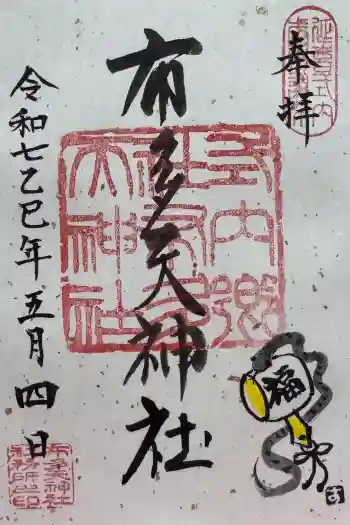 奉拝
延喜式内
布多天神社
式内郷社
布多天神社
福
令和七乙巳年五月四日
布多天神社
社務所之印